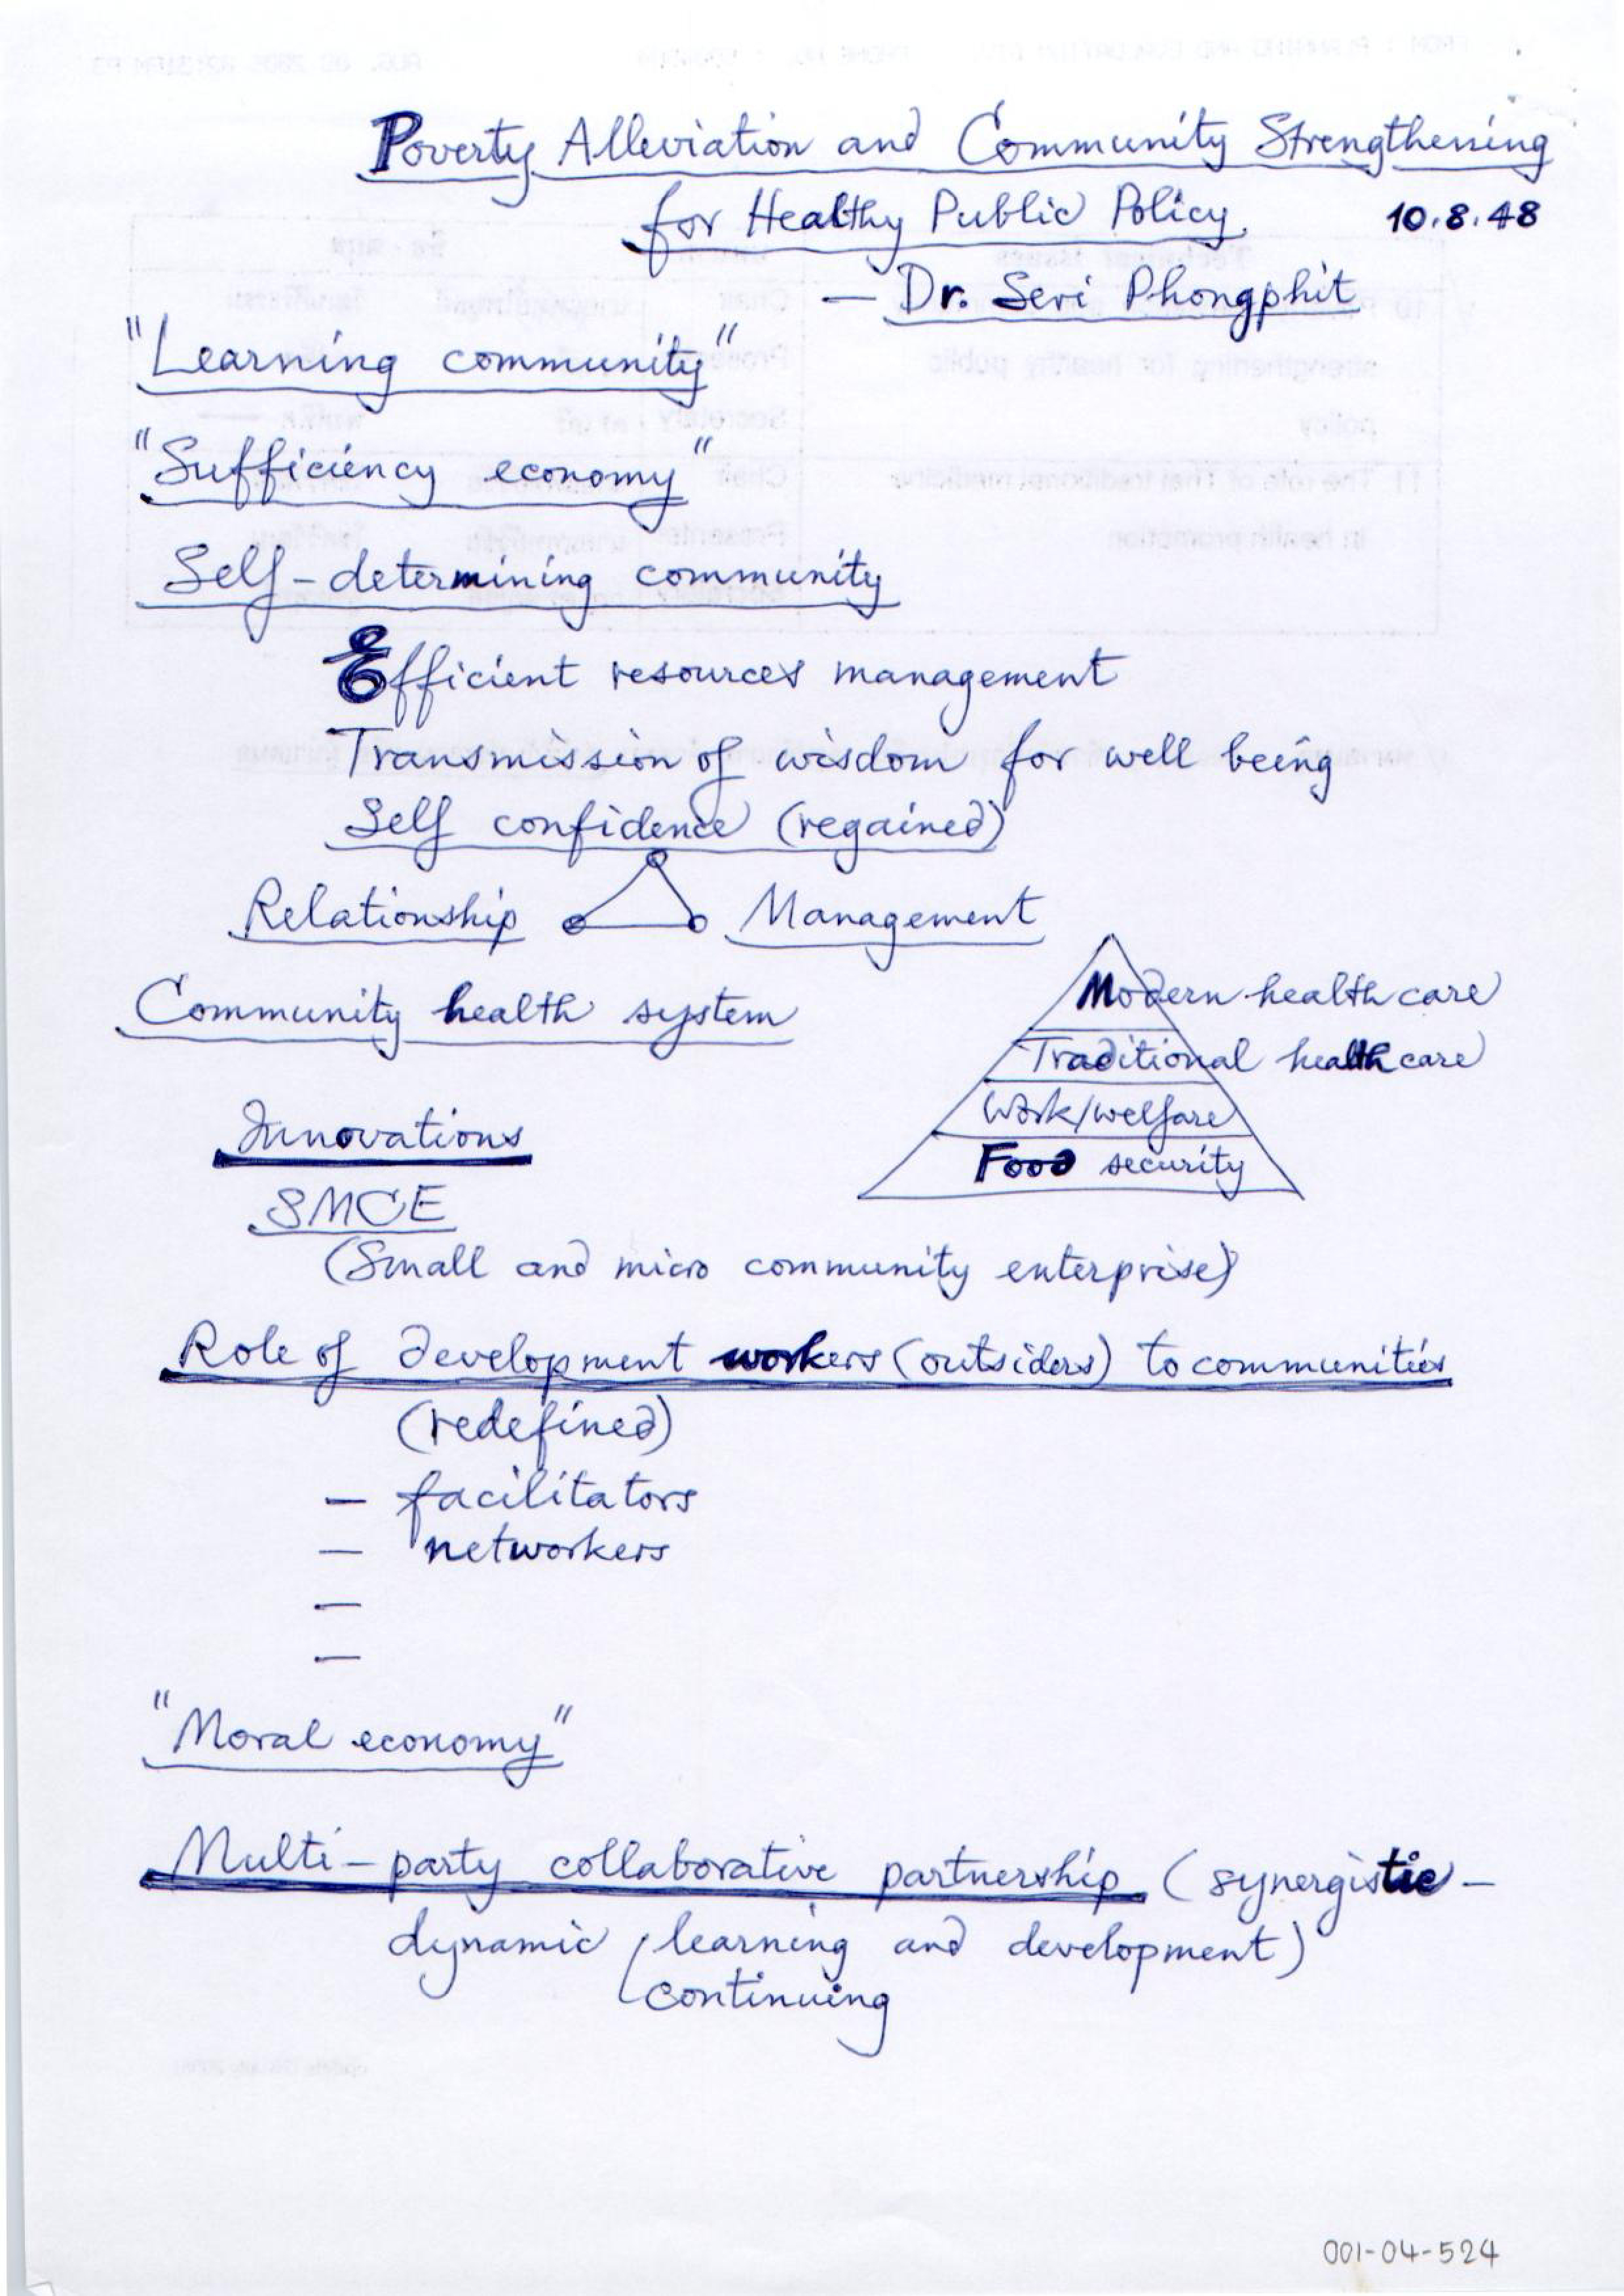 Poverty Alleviation and Community Strengthening
for Healthy Public Policy 10.8.48
— Dr. Seri Phongphit
"Learning community"
"Sufficiency economy"
Self-determining community
Efficient resources management
Transmission of wisdom for well being
Self confidence (regained)
Relationship Management
Community health system
Modern health care
Traditional health care
Work/welfare
Food security
Innovations
SMCE
(Small and micro community enterprise)
Role of development workers (outsiders) to communities
(redefined)
— facilitators
— networkers
—
—
"Moral economy"
Multi-party collaborative partnership (synergistic-
dynamic learning and development)
continuing
001-04-524